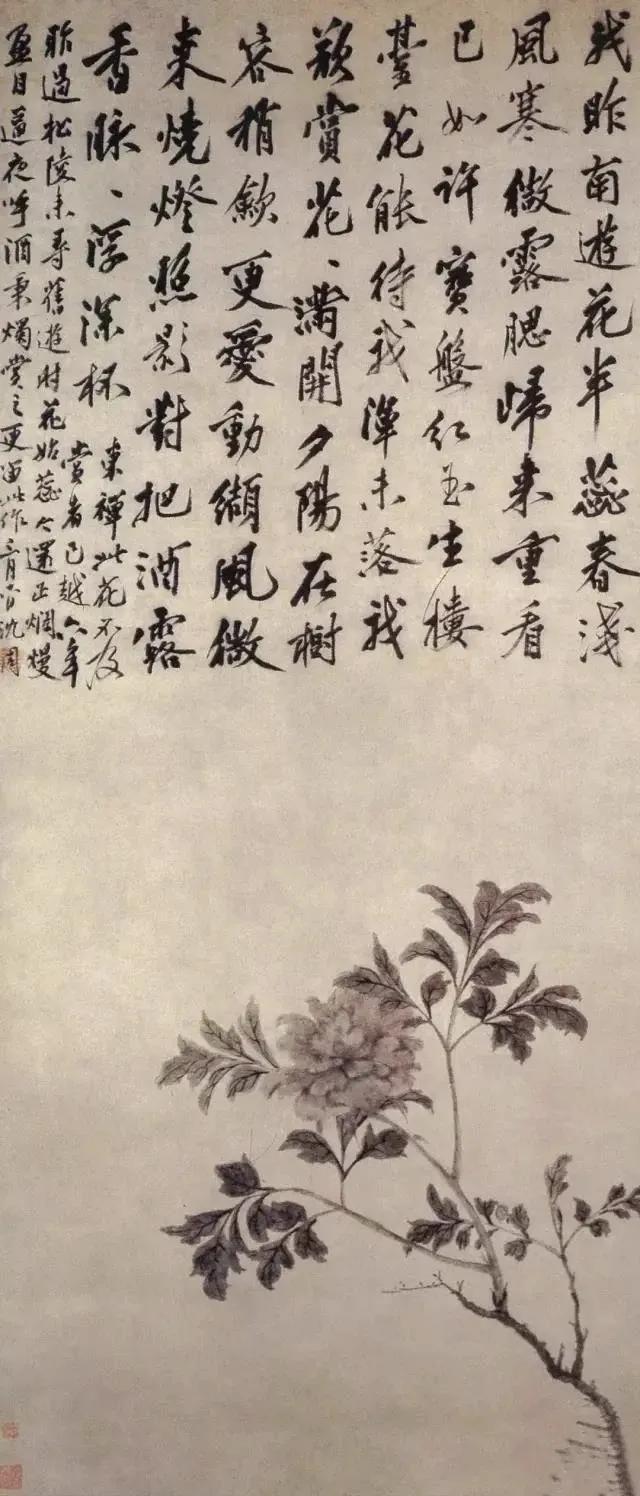 我昨南遊花半蕊春淺
風寒微露腮歸來重看
已如許寶盤紅玉生樓
臺花能待我渾未落我
欲賞花〻滿開夕陽在樹
容稍歛更愛動纈風微
來燒燈照影對把酒露
香脉〻浮深杯
東禪此花不及
賞者已越六年
昨過松陵未尋舊遊時花始蕊今還正爛熳
盈目逼夜呼酒秉燭賞之更留此作 沈周